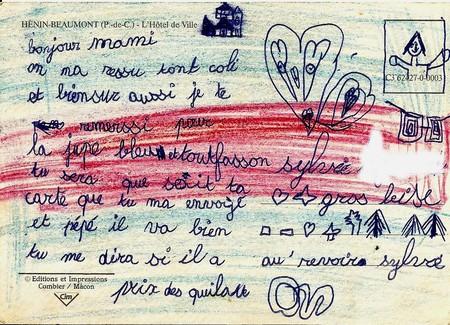 HÉNIN-BEAUMONT (P.-de-C.) - L'Hôtel de Ville
C3 62-27-0-0003
bonjour mami
on ma ressu tont coli
et biensur aussi je te
remerssi pour
la jupe bleu et toutfasson sylvie
tu sera que soit ta
carte que tu ma envoyé gros bise
et pépé il va bien
tu me dira si il a au'revoire sylvie
© Editions et Impressions
Combier / Mâcon
Cim
prix des